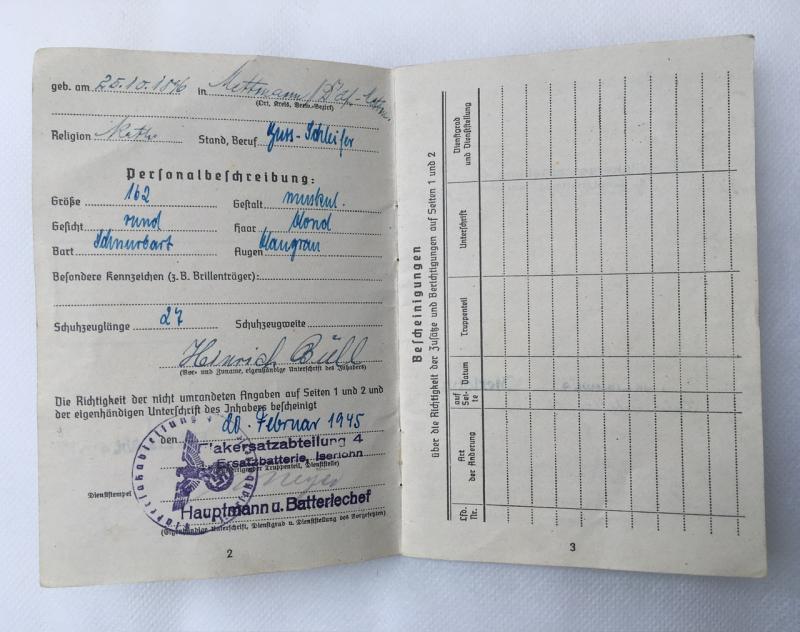 geb. am 25.10.1896 in Mettmann/
(Ort, Kreis, Verw.-Bezirk)
Religion Kath. Stand, Beruf Guss-Schleifer
Personalbeschreibung:
Größe 162 Gestalt muskul.
Gesicht rund Haar blond
Bart Schnurbart Augen blaugrau
Besondere Kennzeichen (z. B. Brillenträger):
Schuhzeuglänge 27 Schuhzeugweite
Heinrich Büll
(Vor- und Zuname, eigenhändige Unterschrift des Inhabers)
Die Richtigkeit der nicht umrandeten Angaben auf Seiten 1 und 2 und
der eigenhändigen Unterschrift des Inhabers bescheinigt
den 20. Februar 1945
akersatzabteilung 4
Ersatzbatterie, Iserlohn
Truppenteil, Dienststelle)
Dienststempel
Hauptmann u. Batteriechef
(Eigenhändige Unterschrift, Dienstgrad u. Dienststellung des Vorgesetzten)
2
Bescheinigungen
über die Richtigkeit der Zusätze und Berichtigungen auf Seiten 1 und 2
Lfd. Nr.
Art der Änderung
auf Sei-te
Datum
Truppenteil
Unterschrift
Dienstgrad und Dienststellung
3